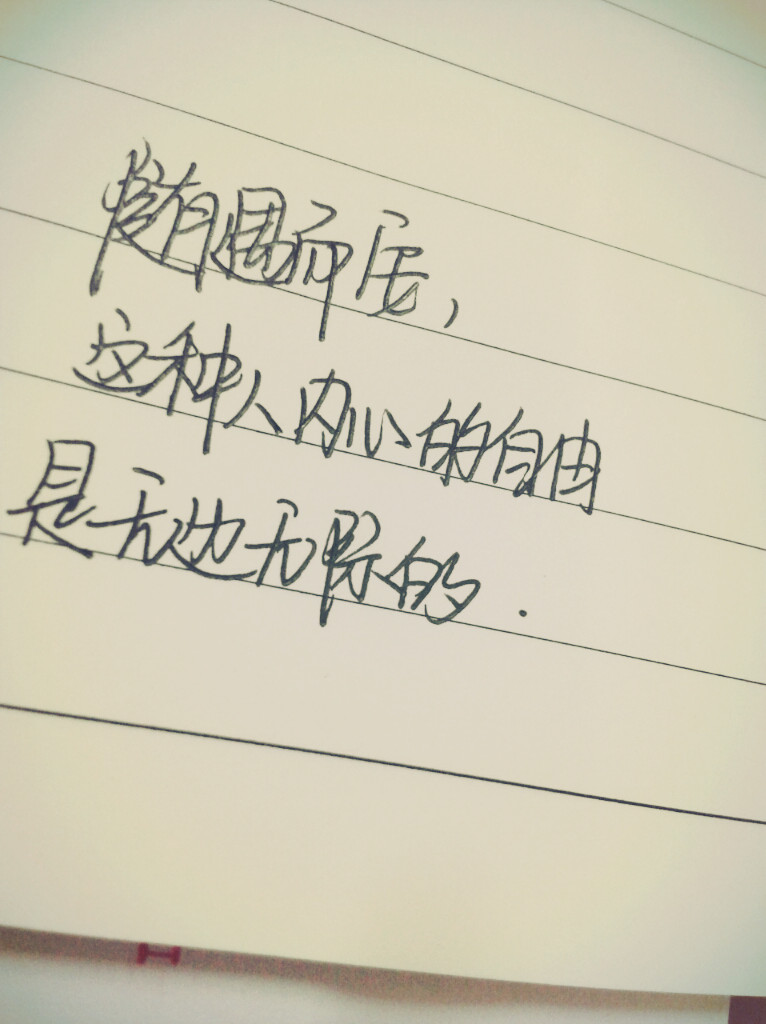 随遇而安，
这种人内心的自由
是无边无际的．